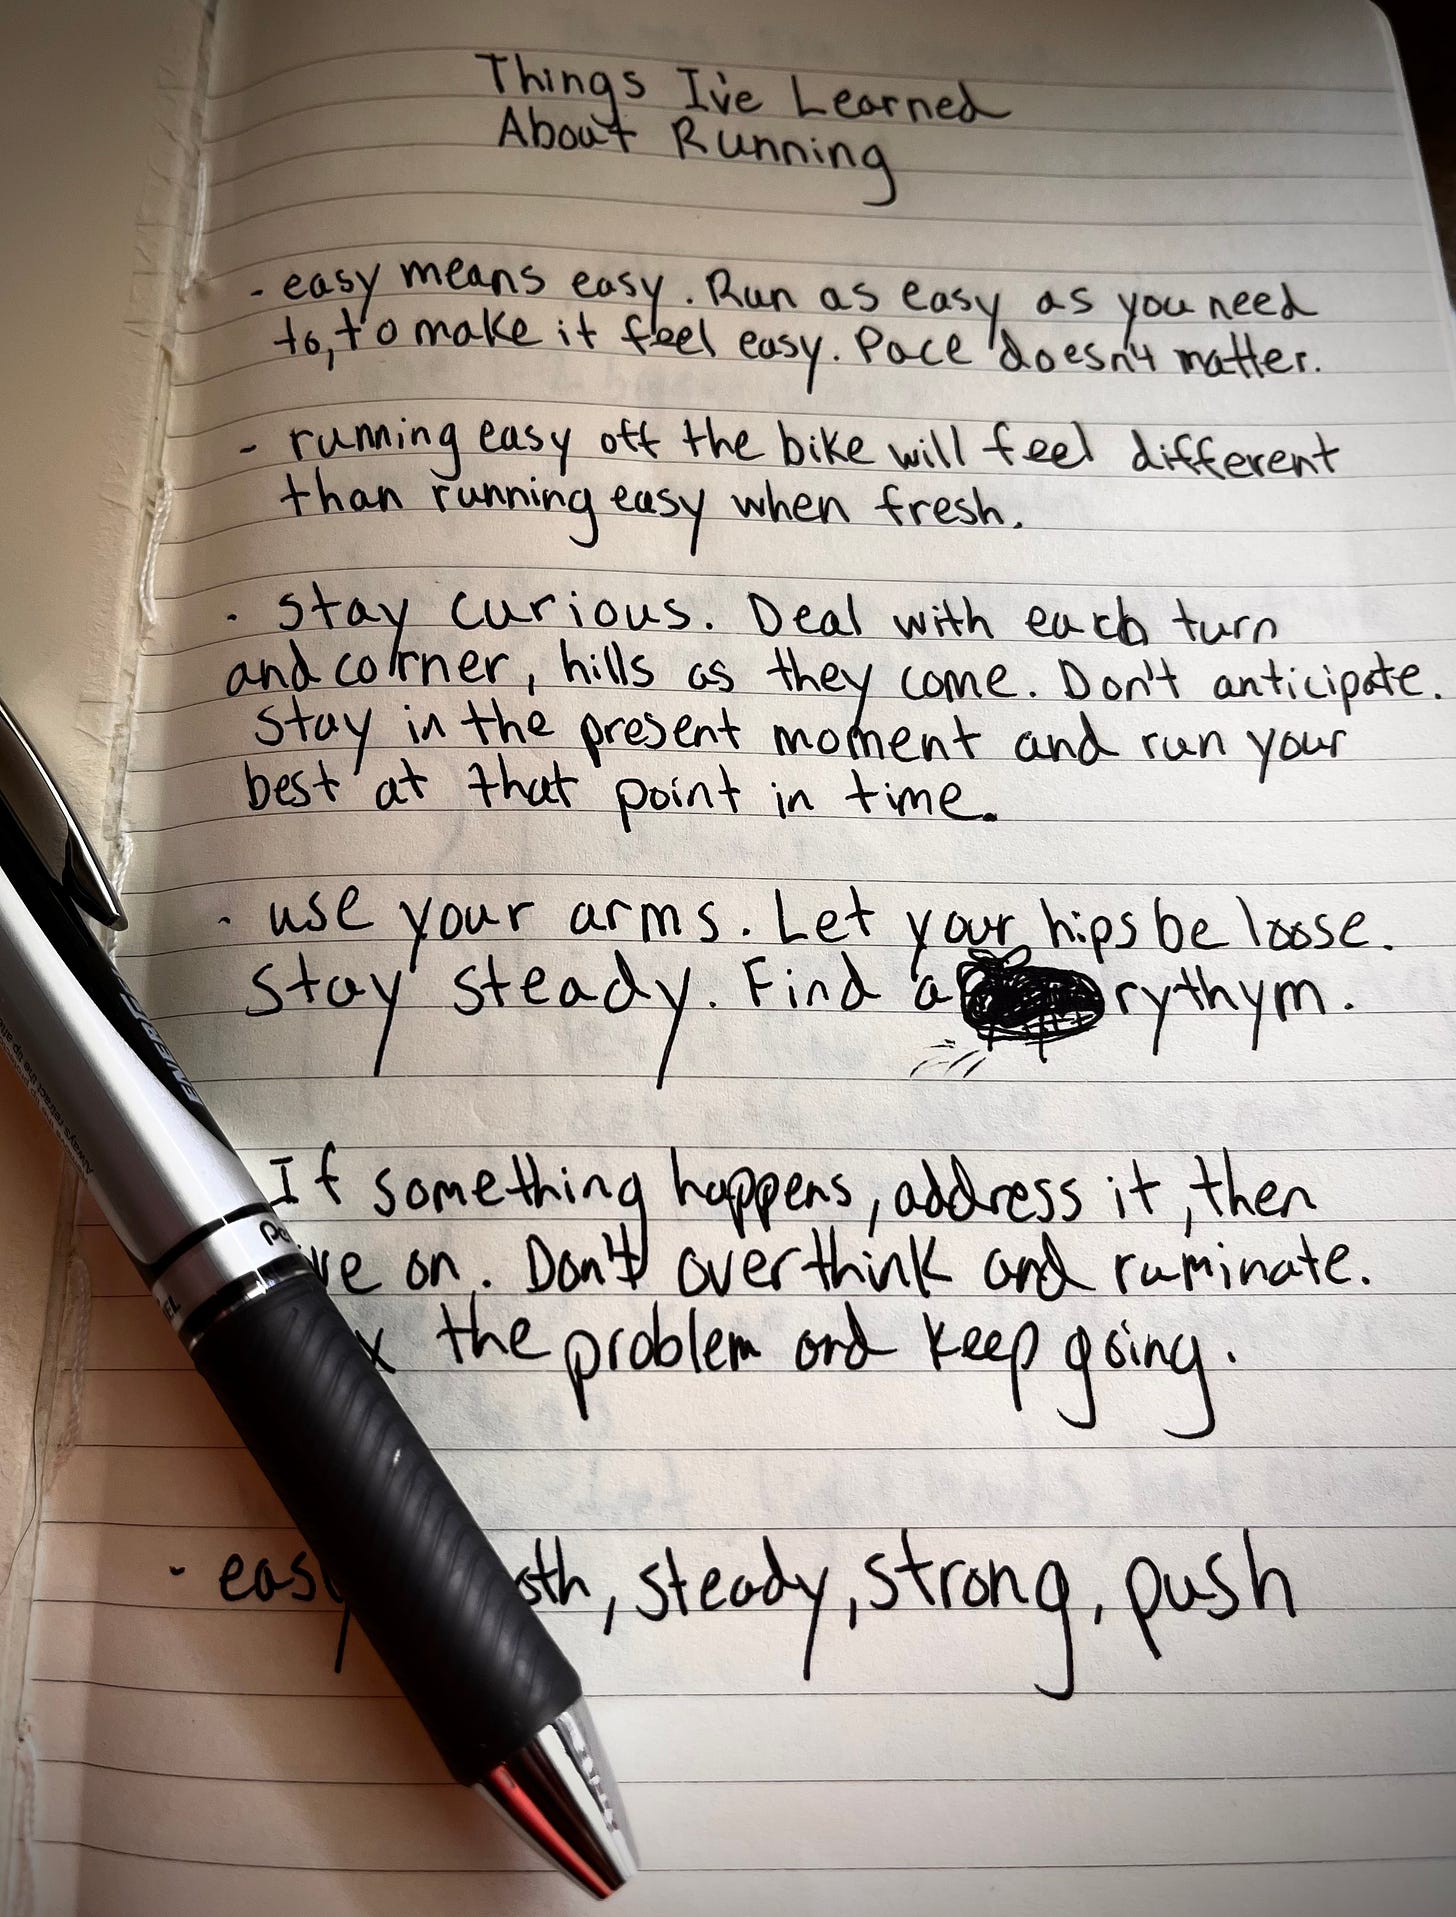 Things I've Learned
About Running
- easy means easy. Run as easy as you need
to, to make it feel easy. Pace doesn't matter.
- running easy off the bike will feel different
than running easy when fresh.
· stay curious. Deal with each turn
and corner, hills as they come. Don't anticipate.
Stay in the present moment and run your
best at that point in time.
· use your arms. Let your hips be loose.
Stay steady. Find a rythym.
If something happens, address it, then
on. Don't overthink and ruminate.
the problem and keep going.
· easy, steady, strong, push
ENERGEL
Always retract the tip